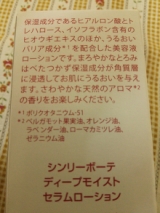 保湿成分であるヒアルロン酸と
レハロース、イソフラボン含有の
ヒオウギエキスのほか、うるおい
バリア成分*¹を配合した美容液
ローションです。まろやかなとろみ
はべたつかず保湿成分が角質層
に浸透してお肌にうるおいを与え
ます。さわやかな天然のアロマ*²
の香りをお楽しみください。
*¹ポリクオタニウム-51
*²ベルガモット果実油、オレンジ油、
ラベンダー油、ローマカミツレ油、
ゼラニウム油
シンリーボーテ
ディープモイスト
セラムローション